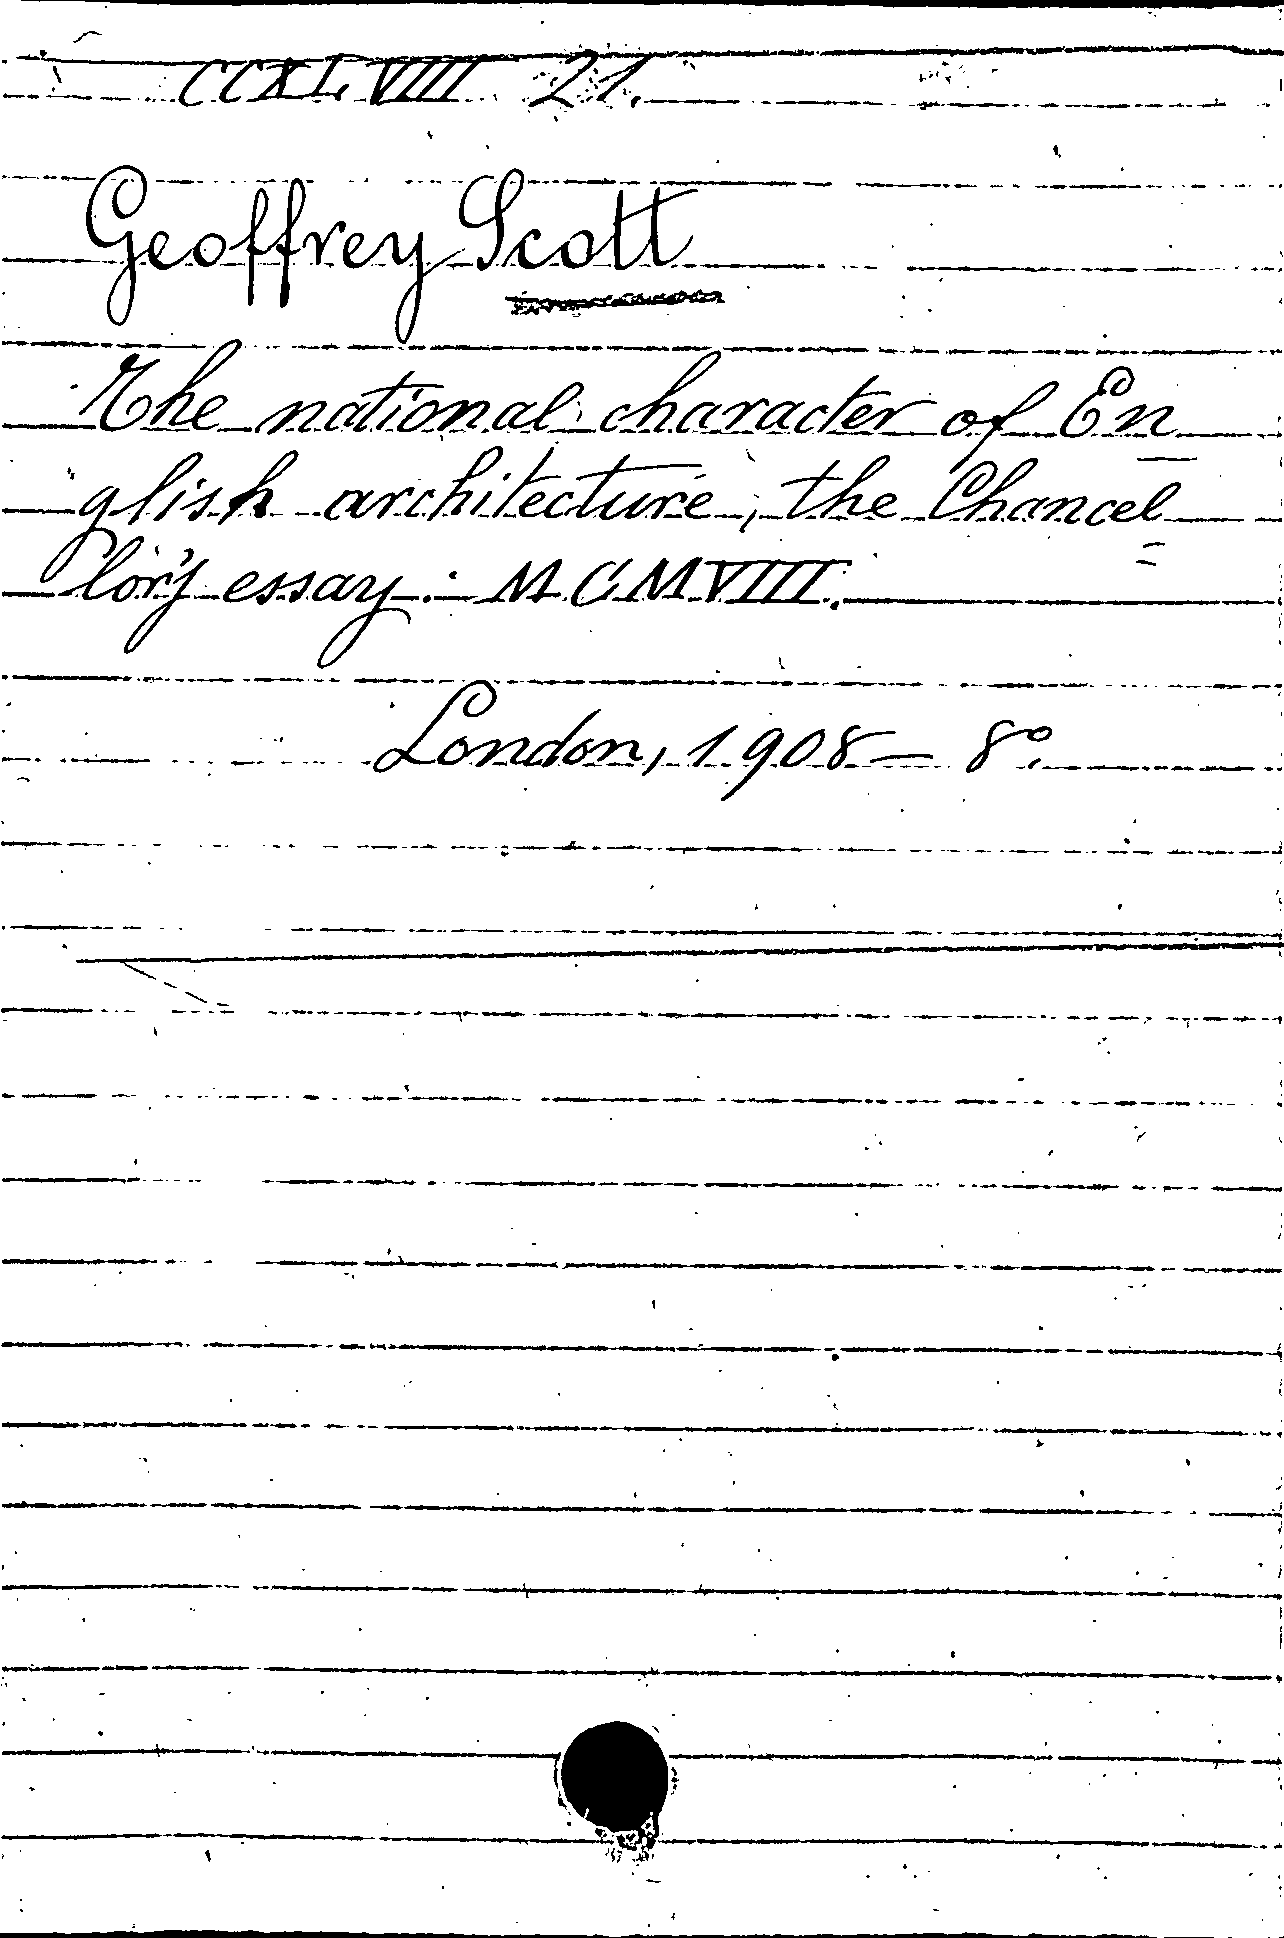 CCXLVIII 21.
Geoffrey Scott
The national character of En
glish architecture, the Chancel
lor's essay: MCMVIII.
London, 1908 — 8°.